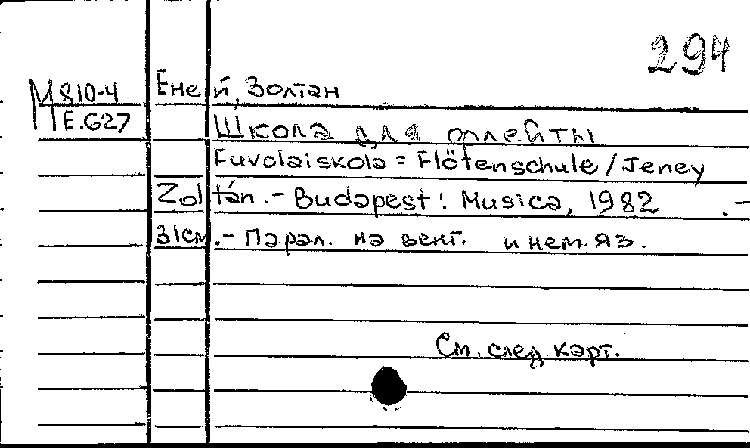 294
М810-4 Еней, Золтан
Е.G27 Школа для флейты
Fuvolaiskola = Flötenschule / Jeney
Zoltán. - Budapest: Musica, 1982 . -
31см. - Парал. на венг. и нем. яз.
См. след. карт.